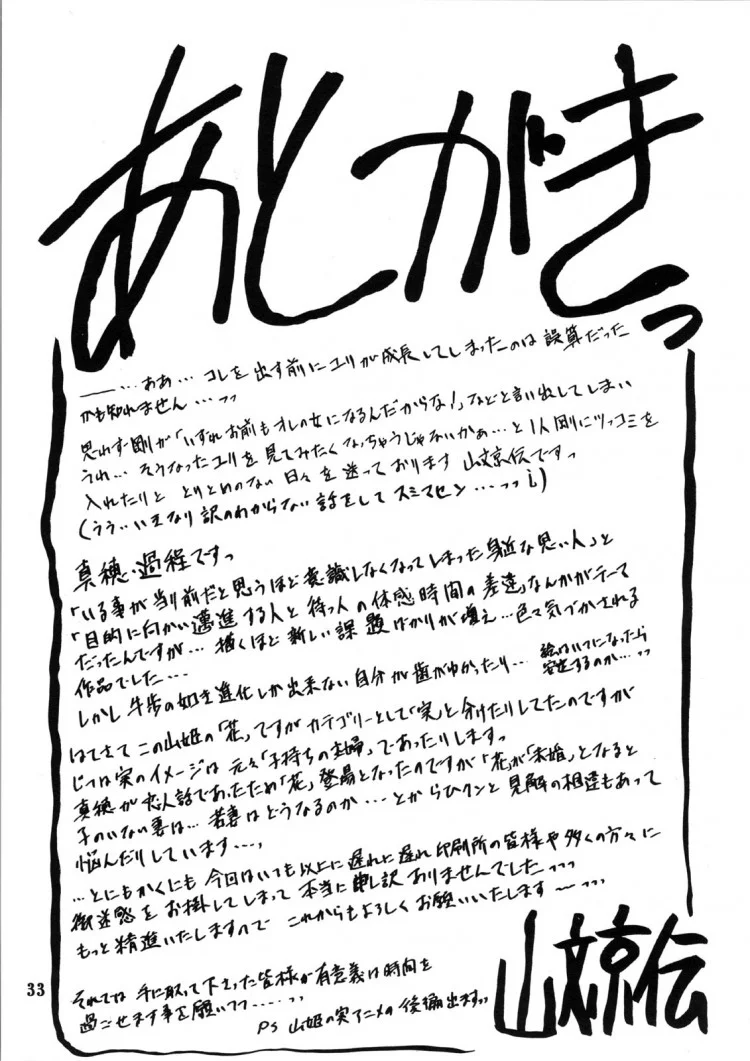 あとがきっ
――…ああ…コレを出す前にユリが成長してしまったのは誤算だった
かも知れません…っっ
思わず剛が「いずれお前もオレの女になるんだからな!」などと言い出してしまい
うれ…そうなったユリを見てみたくなっちゃうじゃないかぁ…と1人剛にツッコミを
入れたりと とりとめのない日々を送っております 山文京伝ですっ
(うう…いきなり訳のわからない話をしてスミマセン…っっ)
真穂・過程ですっ
「いる事が当り前だと思うほど意識しなくなってしまった身近な思い人」と
「目的に向かい邁進する人と待つ人の体感時間の差違」なんかがテーマ
だったんですが…描くほど新しい課題ばかりが増え…色々気づかされる
作品でした…
しかし牛歩の如き進化しか出来ない自分が歯がゆかったり…
絵はいつになったら
安定するのか…っっ
はてさてこの山姫の「花」ですがカテゴリーとして「実」と分けたりしてたのですが
じつは実のイメージは元々「子持ちの主婦」であったりしますっ
真穂が恋人話であったため「花」登場となったのですが「花」が「未婚」となると
子のいない妻は…若妻はどうなるのか…とからひクンと見解の相違もあって
悩んだりしています…っ
…とにもかくにも今回はいつも以上に遅れに遅れ印刷所の皆様や多くの方々に
御迷惑をお掛してしまって本当に申し訳ありませんでしたっっっ
もっと精進いたしますので これからもよろしくお願いいたします〜っっっ
それでは手に取って下さった皆様が有意義な時間を
過ごせます事を願いつつ……っっ
PS 山姫の実アニメの後編出ますっっ
山文京伝
33